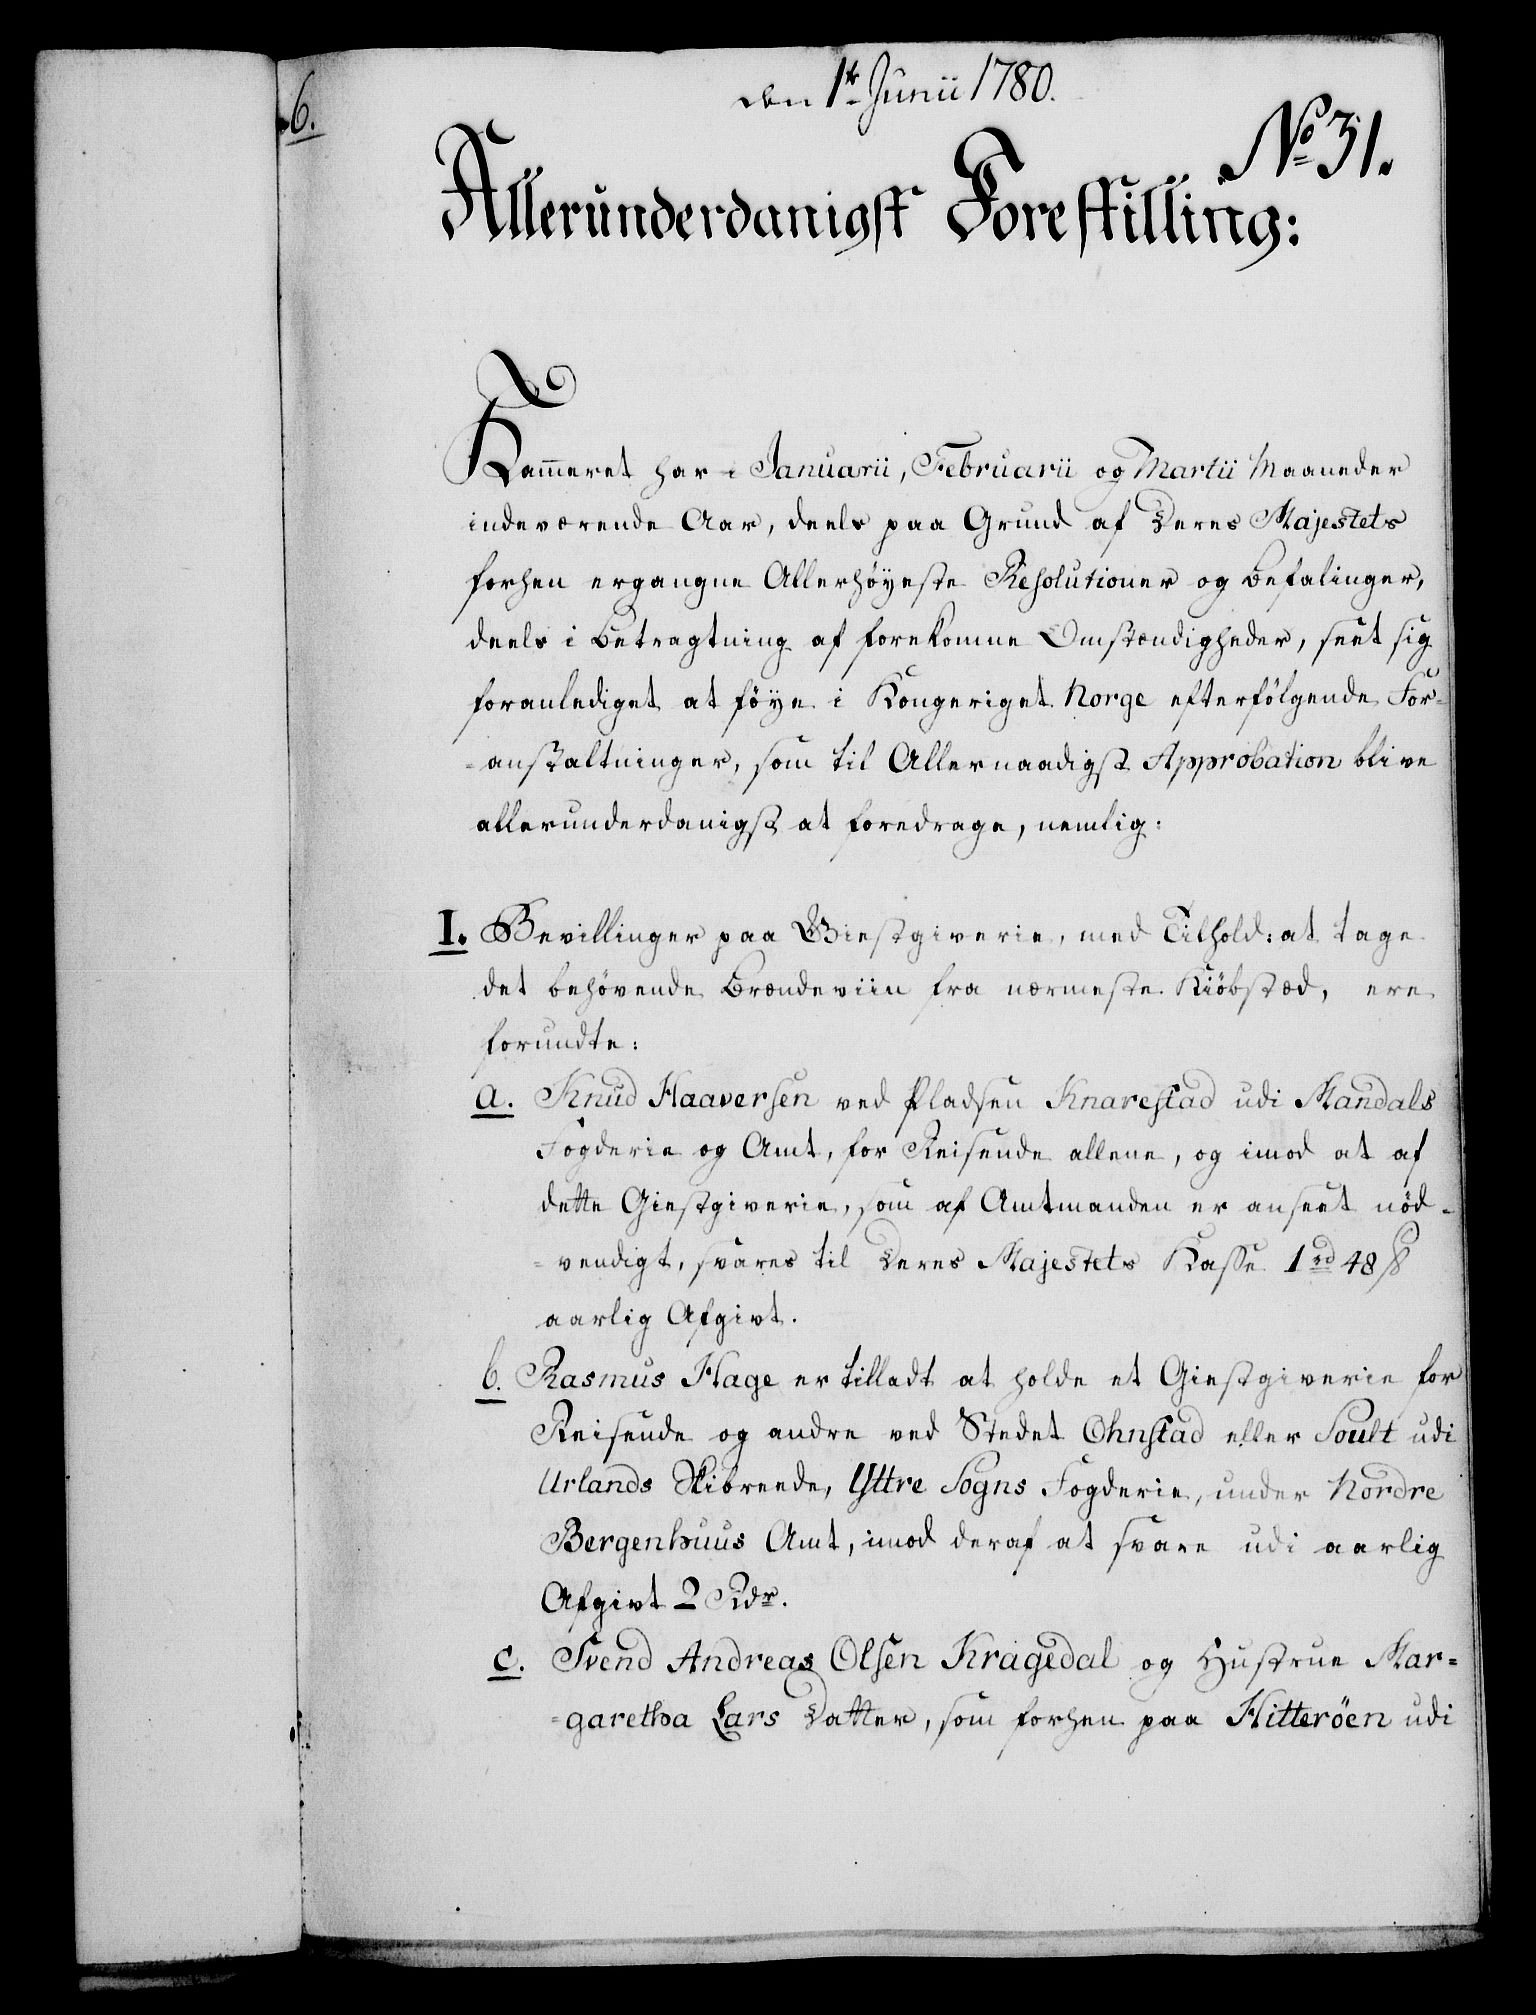 6.
den 1te Junii 1780.
No 31.
Allerunderdanigst Forestilling:
Kammeret har i Januarii, Februarii og Martii Maaneder
indeværende Aar, deels paa Grund af Deres Majestets
forhen ergangne Allerhøyeste Resolutioner og Befalinger,
deels i Betragtning af forekomne Omstændigheder, seet sig
foranlediget at føye i Kongeriget Norge efterfølgende For-
-anstaltninger, som til Allernaadigst Approbation blive
allerunderdanigst at foredrage, nemlig:
I. Bevillinger paa Giestgiverie, med Tilhold: at tage
det behøvende Brændeviin fra nærmeste Kiøbstæd, ere
forundte:
a. Knud Haaversen ved Pladsen Knarestad udi Mandals
Fogderie og Amt, for Reisende allene, og imod at af
dette Giestgiverie, som af Amtmanden er anseet nød-
-vendigt, svares til Deres Majestets Kasse 1 rd 48 ß
aarlig Afgivt.
b. Rasmus Hage er tilladt at holde et Giestgiverie for
Reisende og andre ved Stedet Ohnstad eller Soult udi
Urlands Skibreede, Yttre Sogns Fogderie, under Nordre
Bergenhuus Amt, imod deraf at svare udi aarlig
Afgivt 2 Rdr.
c. Svend Andreas Olsen Kragedal og Hustrue Mar=
=garetha Lars Datter, som forhen paa Hitterøen udi